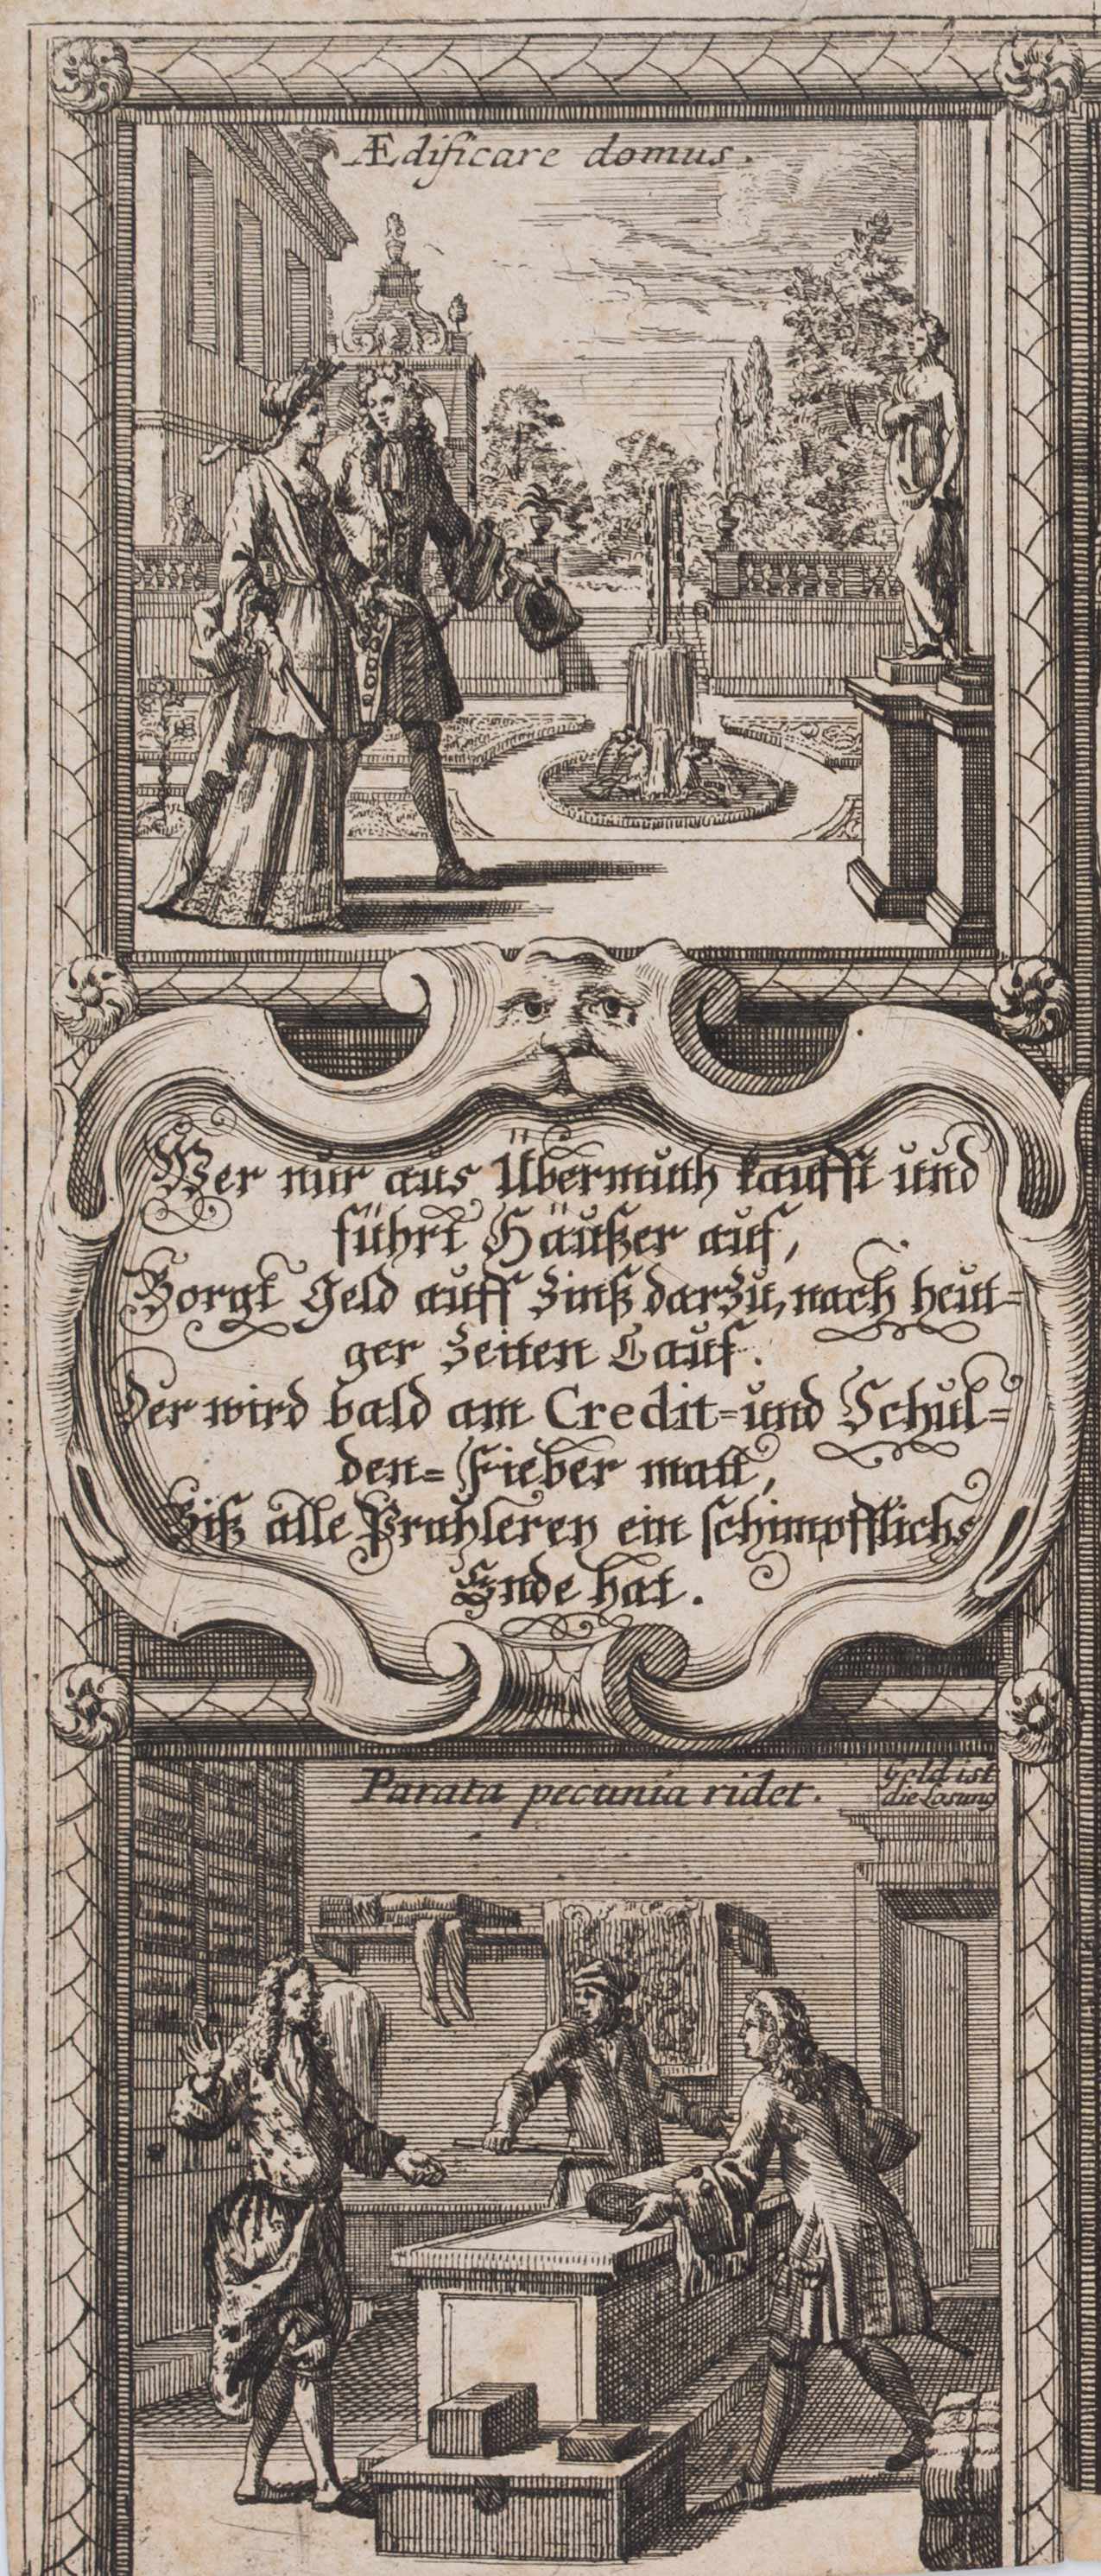 Ædificare domus.
Wer nur aus Übermuth kaufft und
führt Häußer auf,
Borgt Geld auff Zinß darzu, nach heut=
ger Zeiten Lauf.
Der wird bald am Credit= und Schul=
den= Fieber matt,
Biß alle Prahlerey ein schimpfflichs
Ende hat.
Parata pecunia ridet.
Geld ist
die Losung